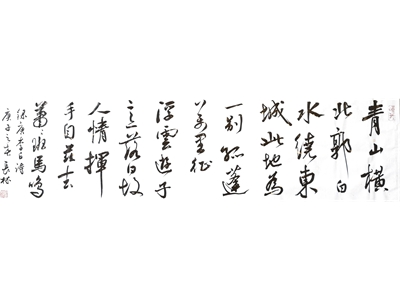 青山橫
北郭白
水繞東
城此地為
一別孤蓬
萬里征
浮雲遊子
意落日故
人情揮
手自茲去
蕭蕭班馬鳴
錄唐李白詩
庚子之春